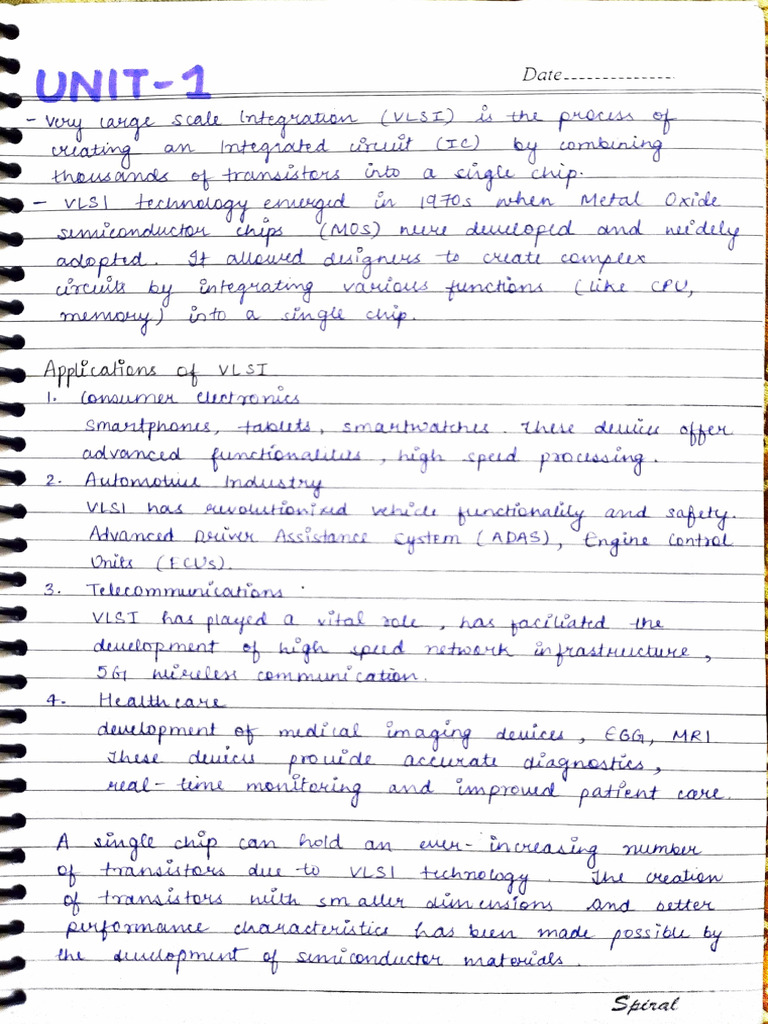 Date
UNIT-1
- Very Large Scale Integration (VLSI) is the process of
creating an Integrated Circuit (IC) by combining
thousands of transistors into a single chip.
- VLSI technology emerged in 1970s when Metal Oxide
semiconductor chips (MOS) were developed and widely
adopted. It allowed designers to create complex
circuits by integrating various functions (like CPU,
memory) into a single chip.
Applications of VLSI
1. Consumer Electronics
Smartphones, tablets, smartwatches. These devices offer
advanced functionalities, high speed processing.
2. Automotive Industry
VLSI has revolutionized vehicle functionality and safety.
Advanced Driver Assistance System (ADAS), Engine Control
Units (ECUs).
3. Telecommunications
VLSI has played a vital role, has faciliated the
development of high speed network infrastructure,
5G wireless communication.
4. Healthcare
development of medical imaging devices, EGG, MRI
These devices provide accurate diagnostics,
real-time monitoring and improved patient care.
A single chip can hold an ever-increasing number
of transistors due to VLSI technology. The creation
of transistors with smaller dimensions and better
performance characteristics has been made possible by
the development of semiconductor materials.
Spiral